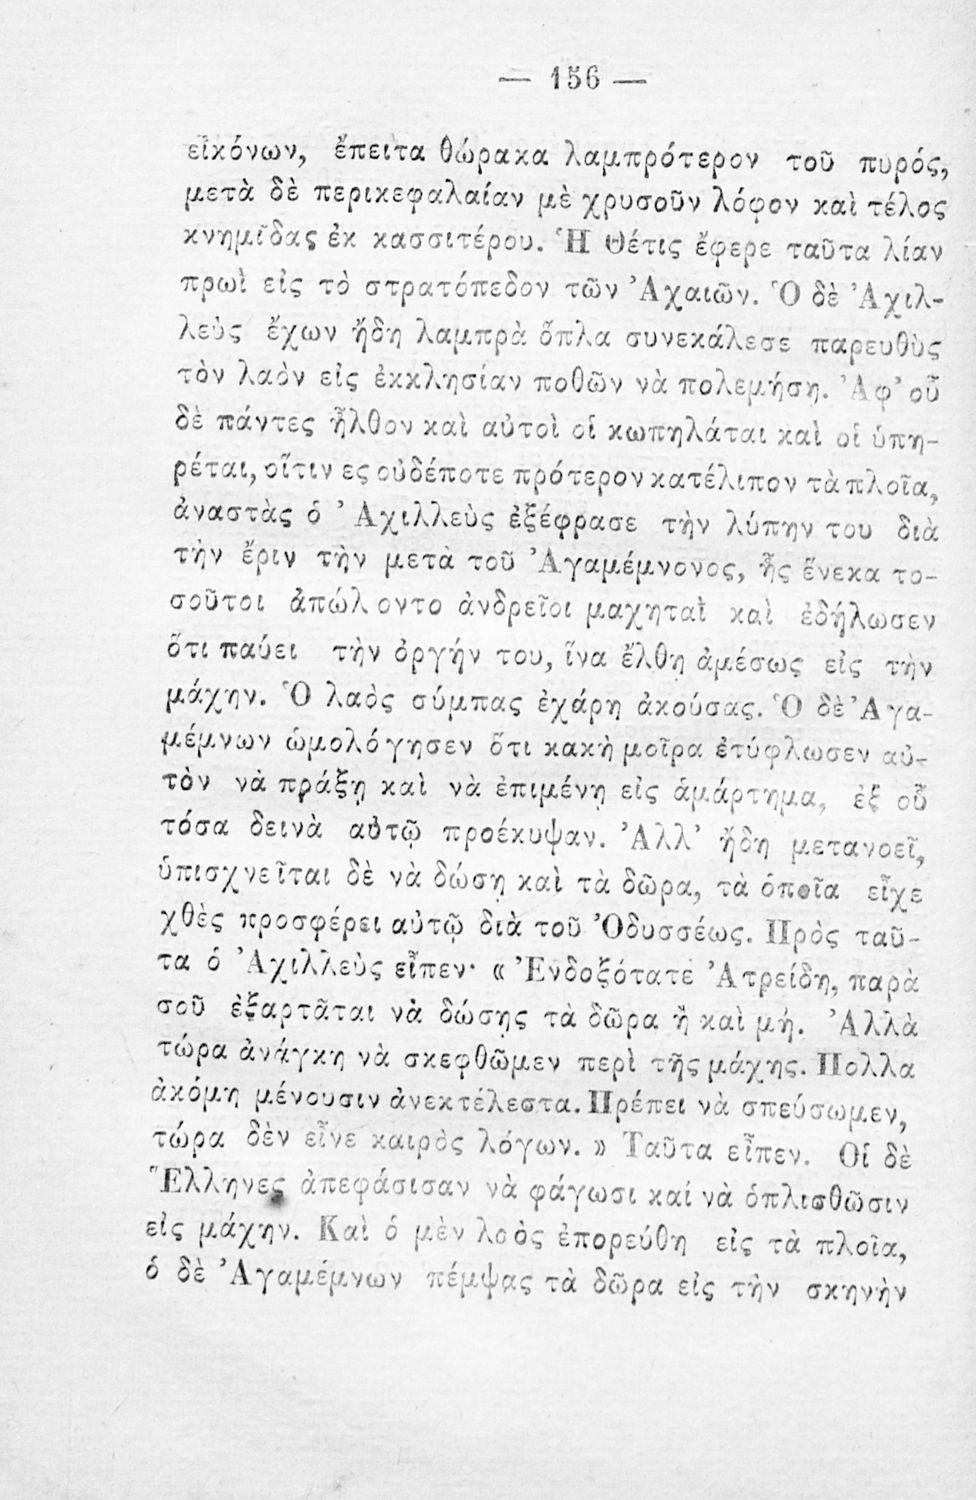 — 156 —
εἰκόνων, ἔπειτα θώρακα λαμπρότερον τοῦ πυρός,
μετὰ δὲ περικεφαλαίαν μὲ χρυσοῦν λόφον καὶ τέλος
κνημῖδας ἐκ κασσιτέρου. Ἡ Θέτις ἔφερε ταῦτα λίαν
πρωὶ εἰς τὸ στρατόπεδον τῶν Ἀχαιῶν. Ὁ δὲ Ἀχιλ-
λεὺς ἔχων ἤδη λαμπρὰ ὅπλα συνεκάλεσε παρευθὺς
τὸν λαὸν εἰς ἐκκλησίαν ποθῶν νὰ πολεμήσῃ. Ἀφ’ οὗ
δὲ πάντες ἦλθον καὶ αὐτοὶ οἱ κωπηλάται καὶ οἱ ὑπη-
ρέται, οἵτιν ες οὐδέποτε πρότερον κατέλιπον τὰ πλοῖα,
ἀναστὰς ὁ Ἀχιλλεὺς ἐξέφρασε τὴν λύπην του διὰ
τὴν ἔριν τὴν μετὰ τοῦ Ἀγαμέμνονος, ἧς ἕνεκα το-
σοῦτοι ἀπώλοντο ἀνδρεῖοι μαχηταὶ καὶ ἐδήλωσεν
ὅτι παύει τὴν ὀργήν του, ἵνα ἔλθῃ ἀμέσως εἰς τὴν
μάχην. Ὁ λαὸς σύμπας ἐχάρη ἀκούσας. Ὁ δὲ Ἀγα-
μέμνων ὡμολόγησεν ὅτι κακὴ μοῖρα ἐτύφλωσεν αὐ-
τὸν νὰ πράξῃ καὶ νὰ ἐπιμένῃ εἰς ἁμάρτημα, ἐξ οὗ
τόσα δεινὰ αὐτῷ προέκυψαν. Ἀλλ’ ἤδη μετανοεῖ,
ὑπισχνεῖται δὲ νὰ δώσῃ καὶ τὰ δῶρα, τὰ ὁποῖα εἶχε
χθὲς προσφέρει αὐτῷ διὰ τοῦ Ὀδυσσέως. Πρὸς ταῦ-
τα ὁ Ἀχιλλεὺς εἶπεν· « Ἐνδοξότατε Ἀτρείδη, παρὰ
σοῦ ἐξαρτᾶται νὰ δώσῃς τὰ δῶρα ἢ καὶ μή. Ἀλλὰ
τώρα ἀνάγκη νὰ σκεφθῶμεν περὶ τῆς μάχης. Πολλα
ἀκόμη μένουσιν ἀνεκτέλεστα. Πρέπει νὰ σπεύσωμεν,
τώρα δὲν εἶνε καιρὸς λόγων. » Ταῦτα εἶπεν. Οἱ δὲ
Ἕλληνες ἀπεφάσισαν νὰ φάγωσι καί νὰ ὁπλισθῶσιν
εἰς μάχην. Καὶ ὁ μὲν λαὸς ἐπορεύθη εἰς τὰ πλοῖα,
ὁ δὲ Ἀγαμέμνων πέμψας τὰ δῶρα εἰς τὴν σκηνὴν